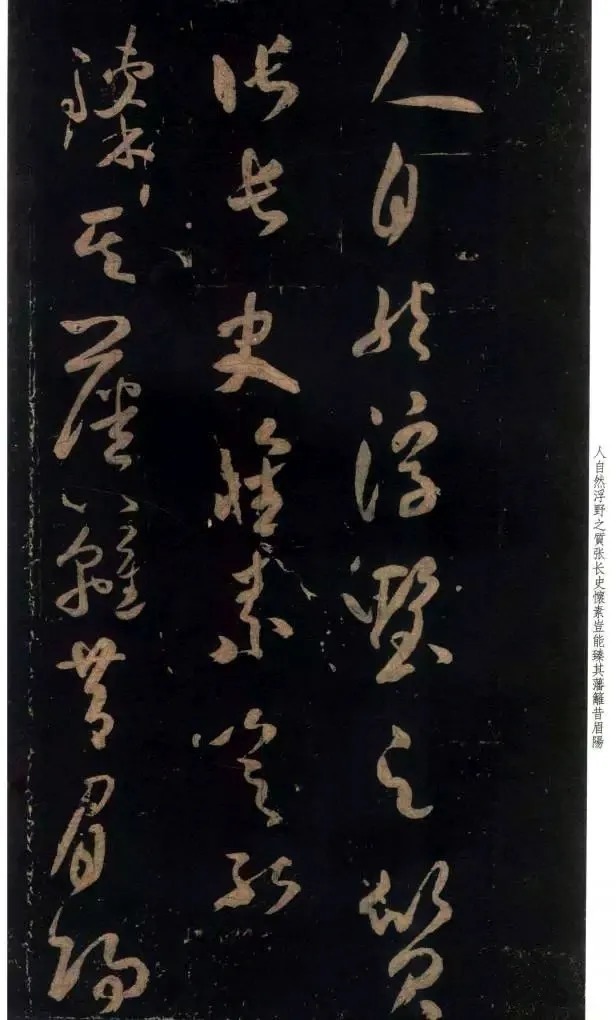 人自然浮野之質
张长史懷素豈能
臻其藩籬昔眉陽
人自然浮野之質张长史懷素豈能臻其藩籬昔眉陽